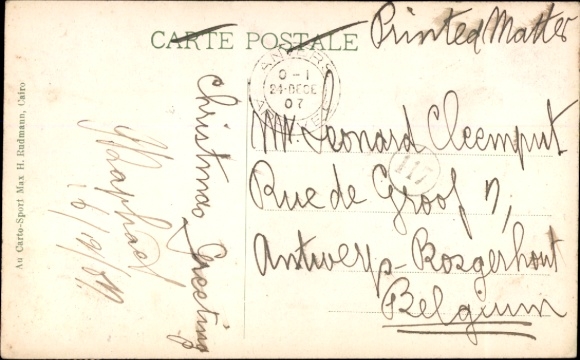 CARTE POSTALE
Printed Matter
Au Carto-Sport Max H. Rudmann, Cairo
Christmas Greeting
Raphael
16/12/07
ANVERS
0-1
24 DECE
07
Mr. Leonard Cleemput
117
Rue de Groof 7,
Antwerp-Borgerhout
Belgium